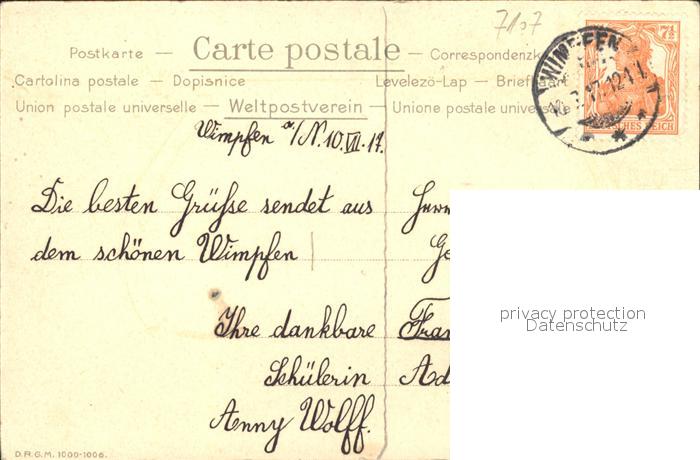 7107
Postkarte — Carte postale — Correspondenzk
Cartolina postale — Dopisnice
Levelezö-Lap — Briefkaart
Union postale universelle — Weltpostverein — Unione postale universale
WIMPFEN
7½
DEUTSCHES REICH
Wimpfen a/N. 10. VII. 17.
Die besten Grüsse sendet aus
dem schönen Wimpfen
Ihre dankbare
Schülerin
Anny Wolff.
Herr
Ge
Fran
Ad
privacy protection
Datenschutz
D.R.G.M. 1000-1006.